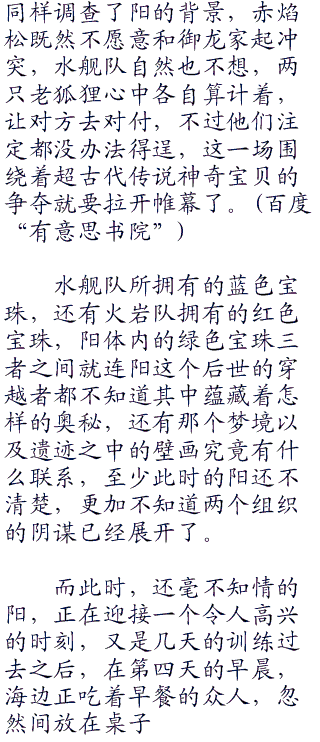 同样调查了阳的背景，赤焰
松既然不愿意和御龙家起冲
突，水舰队自然也不想，两
只老狐狸心中各自算计着，
让对方去对付，不过他们注
定都没办法得逞，这一场围
绕着超古代传说神奇宝贝的
争夺就要拉开帷幕了。(百度
“有意思书院”)
水舰队所拥有的蓝色宝
珠，还有火岩队拥有的红色
宝珠，阳体内的绿色宝珠三
者之间就连阳这个后世的穿
越者都不知道其中蕴藏着怎
样的奥秘，还有那个梦境以
及遗迹之中的壁画究竟有什
么联系，至少此时的阳还不
清楚，更加不知道两个组织
的阴谋已经展开了。
而此时，还毫不知情的
阳，正在迎接一个令人高兴
的时刻，又是几天的训练过
去之后，在第四天的早晨，
海边正吃着早餐的众人，忽
然间放在桌子